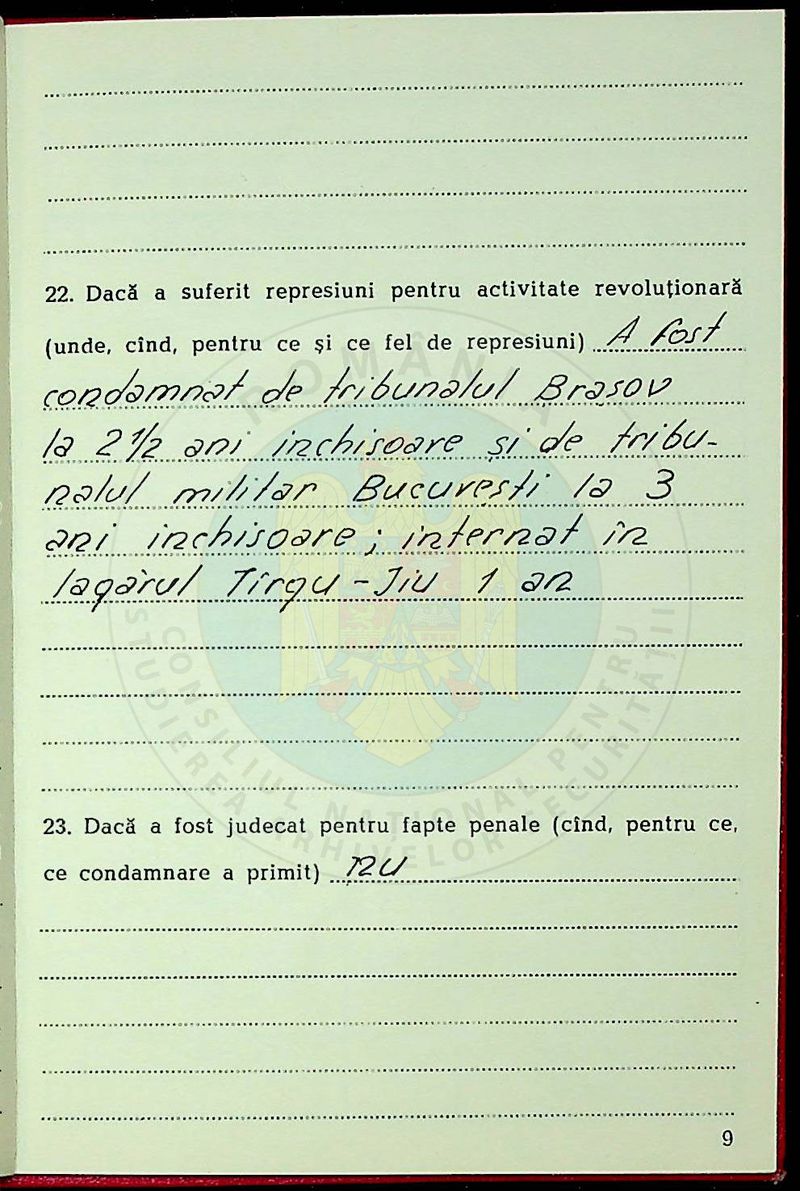 22. Dacă a suferit represiuni pentru activitate revoluționară
(unde, cînd, pentru ce și ce fel de represiuni) A fost
condamnat de tribunalul Brașov
la 2 1/2 ani inchisoare și de tribu-
nalul militar București la 3
ani inchisoare; internat în
lagărul Tîrgu-Jiu 1 an
23. Dacă a fost judecat pentru fapte penale (cînd, pentru ce,
ce condamnare a primit) NU
9
ROMANIA
CONSILIUL NAȚIONAL PENTRU
STUDIEREA ARHIVELOR SECURITĂȚII